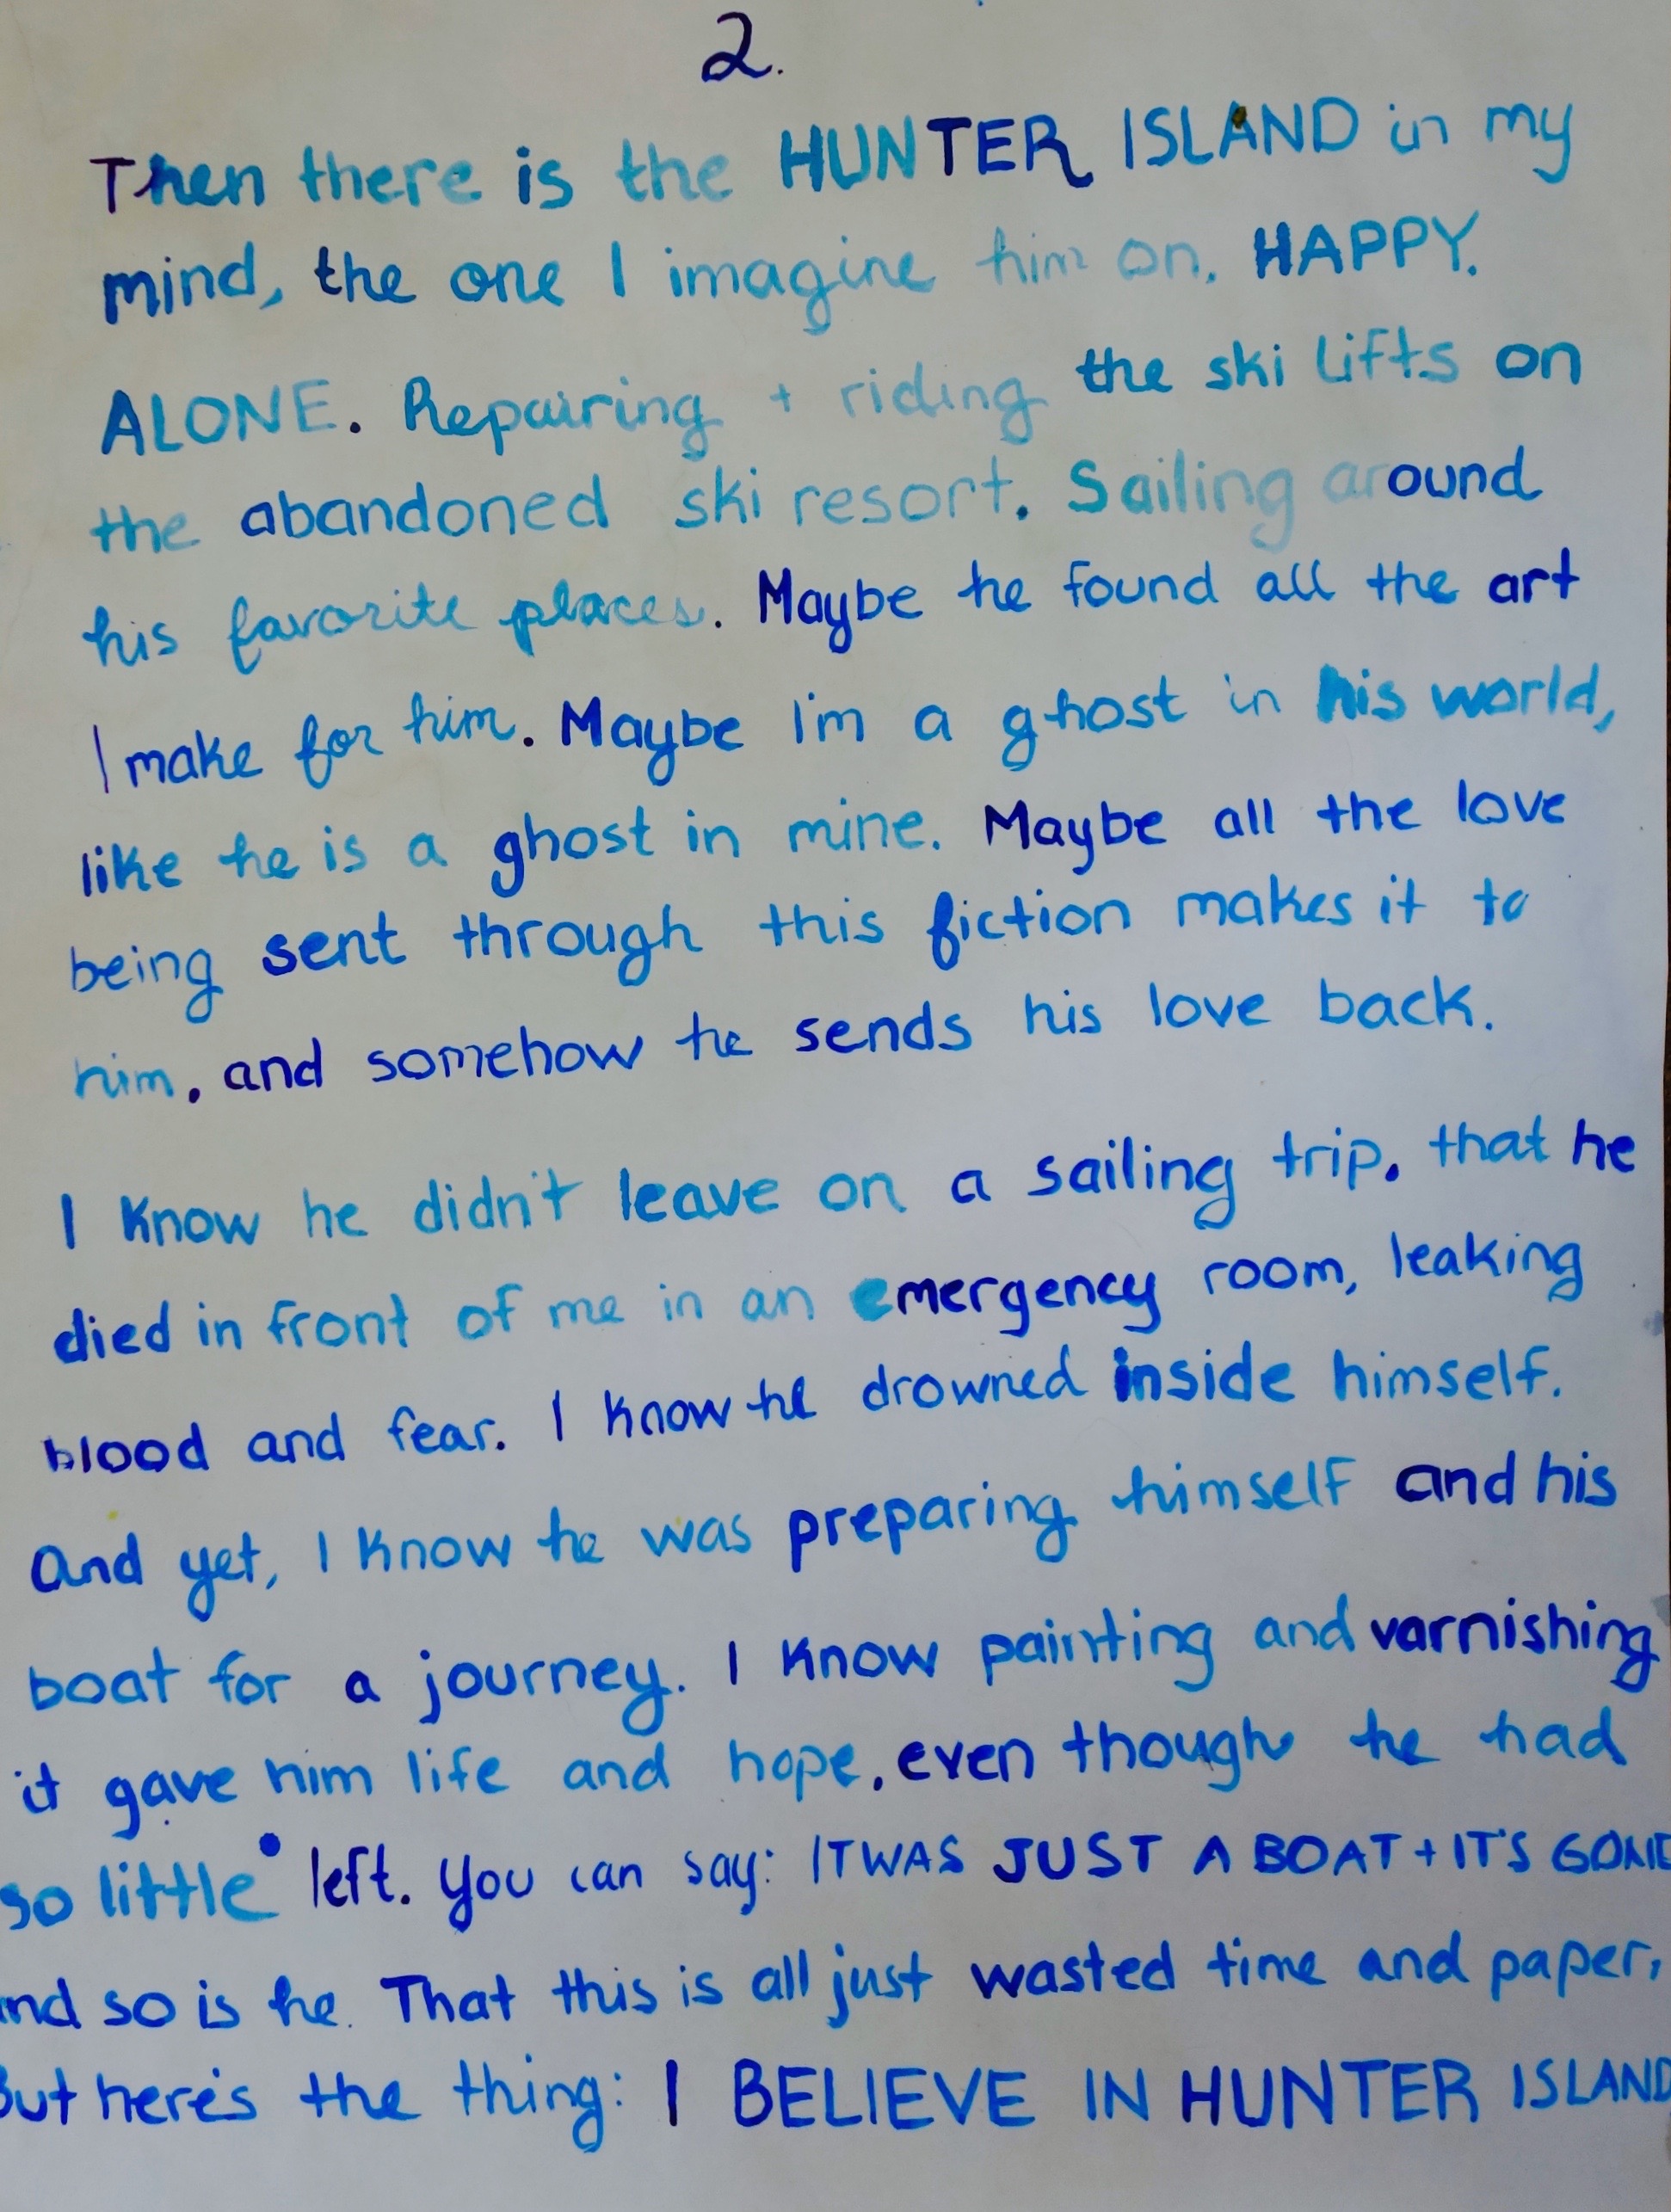 2.
Then there is the HUNTER ISLAND in my
mind, the one I imagine him on. HAPPY.
ALONE. Repairing + riding the ski lifts on
the abandoned ski resort. Sailing around
his favorite places. Maybe he found all the art
I make for him. Maybe I'm a ghost in his world,
like he is a ghost in mine. Maybe all the love
being sent through this fiction makes it to
him, and somehow he sends his love back.
I know he didn't leave on a sailing trip, that he
died in front of me in an emergency room, leaking
blood and fear. I know he drowned inside himself.
And yet, I know he was preparing himself and his
boat for a journey. I know painting and varnishing
it gave him life and hope, even though he had
so little left. You can say: IT WAS JUST A BOAT + IT'S GONE
and so is he. That this is all just wasted time and paper,
But here's the thing: I BELIEVE IN HUNTER ISLAND